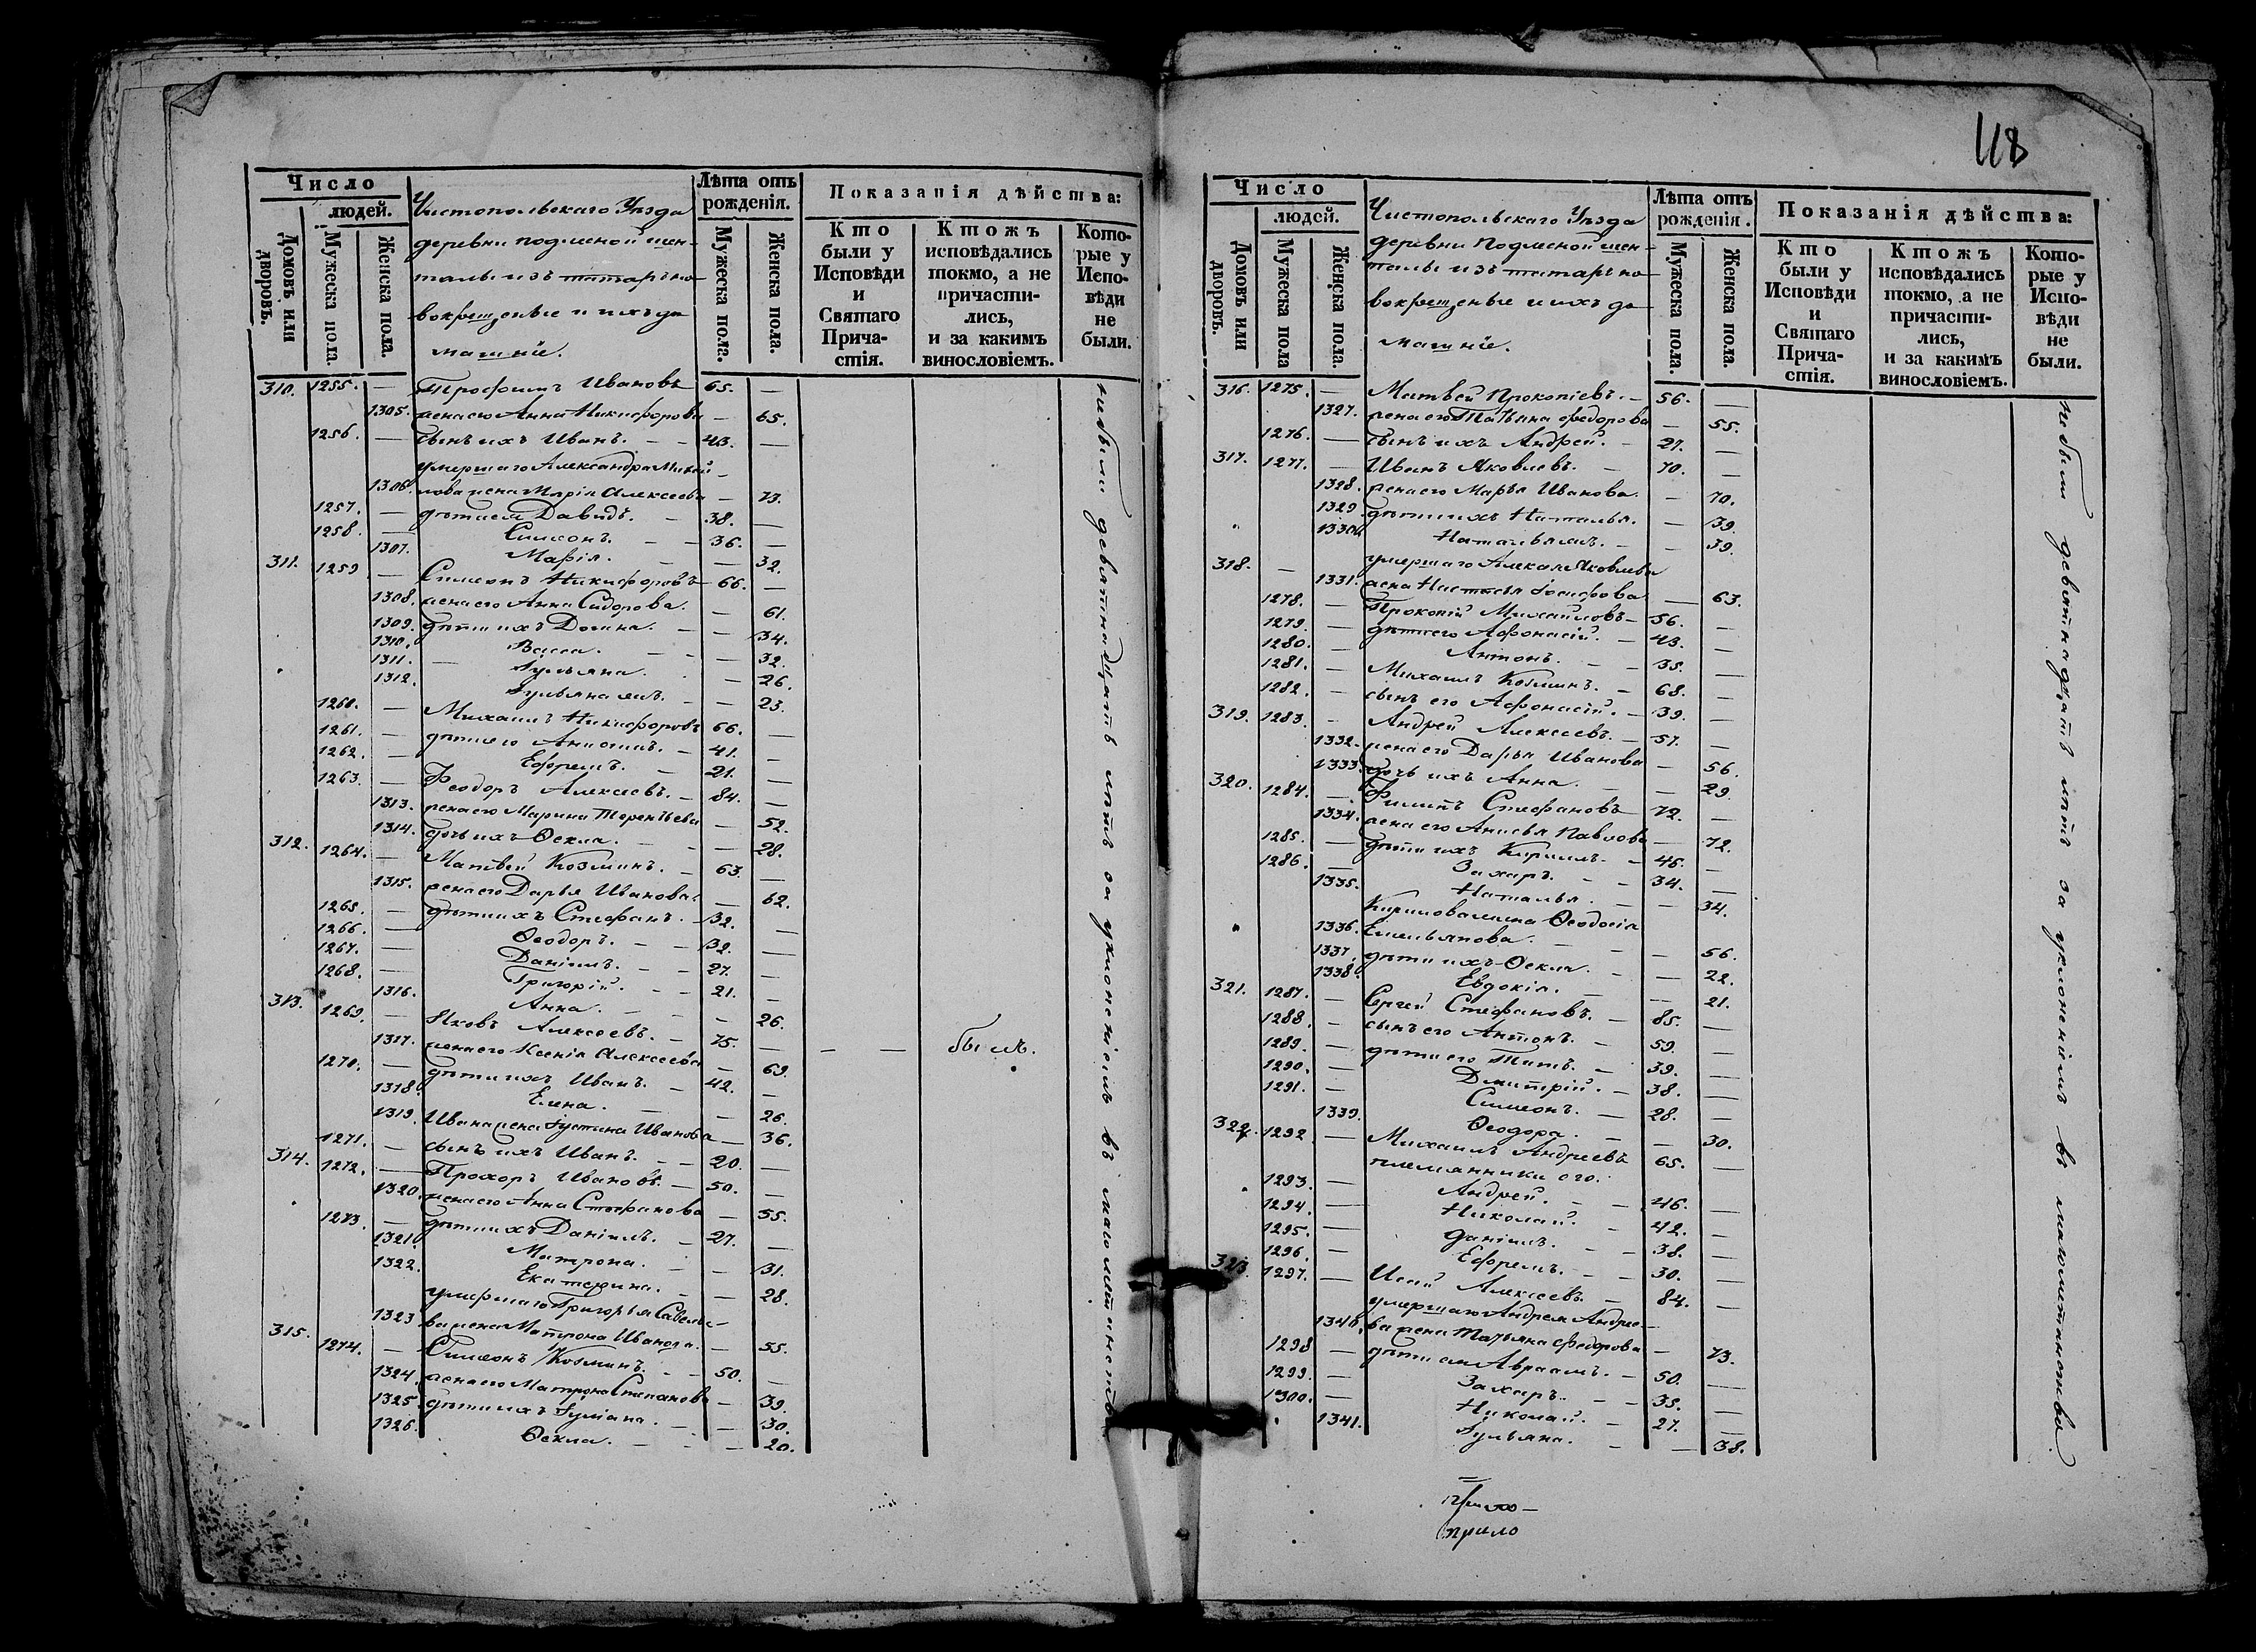 Число
людей.
Домовъ или дворовъ.
Мужеска пола.
Женска пола.
Чистопольскаго Уѣзда
деревни подлѣсной шен-
талы изъ татаръ но-
вокрещеные и ихъ до-
машніе.
Лѣта отъ рожденія.
Мужеска пола.
Женска пола.
Показанія дѣйства:
Кто были у Исповѣди и Святаго Прича-стія.
Ктожъ исповѣдались токмо, а не причасти-лись, и за какимъ винословіемъ.
Кото-рые у Испо-вѣди не были.
310. 1255. — Трофимъ Ивановъ 65. —
1305. жена его Анна Никифорова — 65.
1256. — сынъ ихъ Иванъ. — 43. —
умершаго Александра Михай-
1306. лова жена Марія Алексеева — 73.
1257. — дѣти ея Давидъ. — 38. —
1258. — Симеонъ. — 36. —
1307. Марія. — 32.
311. 1259 — Симеонъ Никифоровъ 66. —
1308. жена его Анна Сидорова. — 61.
1309. дѣти ихъ Домна. — 34.
1310. Васса. — 32.
1311. — Iульяна. — 26.
1312. Iульяна жъ. — 23.
1260. — Михаилъ Никифоровъ 66. —
1261. — дѣти его Анисимъ. — 41. —
1262. — Ефремъ. — 21. —
1263. — Феодоръ Алексеевъ. — 84. —
1313. жена его Марина Терентьева — 52.
1314. дочь ихъ Ѳекла. — 28.
312. 1264. — Матвей Козминъ. — 63. —
1315. жена его Дарья Иванова — 62.
1265. — дѣти ихъ Стефанъ. — 32. —
1266. — Ѳеодоръ. — 32. —
1267. — Даніилъ. — 27. —
1268. — Григорій. — 21. —
1316. Анна. — 26.
313. 1269. — Яковъ Алексеевъ. — 75. — — — былъ.
1317. жена его Ксенія Алексеева — 69.
1270. — дѣти ихъ Иванъ. — 42. —
1318. Елена. — 26.
1319. Ивана жена Iустина Иванова — 36.
1271. — сынъ ихъ Иванъ. — 20. —
314. 1272. — Прохоръ Ивановъ. — 50. —
1320. жена его Анна Стефанова — 55.
1273. — дѣти ихъ Даніилъ. — 27. —
1321. Матрона. — 31.
1322. Екатерина. — 28.
умершаго Григорья Савелье-
1323 ва жена Матрона Иванова. — 55.
315. 1274. — Симеонъ Козминъ. — 50. —
1324. жена его Матрона Степанова — 39.
1325. дѣти ихъ Iуліана. — 30.
1326. Ѳекла. — 20.
не были девятнадцать лѣтъ за уклоненіемъ въ магометанство
118
Число
людей.
Домовъ или дворовъ.
Мужеска пола
Женска пола.
Чистопольскаго Уѣзда
деревни Подлѣсной шен-
талы изъ татаръ но-
вокрещеные и ихъ до-
машніе.
Лѣта отъ рожденія.
Мужеска пола.
Женска пола.
Показанія дѣйства:
Кто были у Исповѣди и Святаго Прича-стія.
Ктожъ исповѣдались токмо, а не причасти-лись, и за какимъ винословіемъ.
Кото-рые у Испо-вѣди не были.
316. 1275. — Матвей Прокопіевъ. — 56. —
1327. жена его Татьяна Федорова — 55.
1276. — сынъ ихъ Андрей. — 27. —
317. 1277. — Иванъ Яковлевъ. — 70. —
1328. жена его Марья Иванова. — 70.
1329 дѣти ихъ Наталья. — 39.
1330. Наталья жъ. — 39.
318. — умершаго Алексея Яковлева
1331. жена Настасья Iосифова — 63.
1278. — Прокопій Михайловъ — 56. —
1279. — дѣти его Афонасій. — 43. —
1280. — Антонъ. — 35. —
1281. — Михаилъ Козминъ. — 68. —
1282. — сынъ его Афонасій. — 39. —
319. 1283. — Андрей Алексеевъ. — 57. —
1332. жена его Дарья Иванова — 56.
1333. дочь ихъ Анна. — 29.
320. 1284. — Филипъ Стефановъ 72. —
1334. жена его Анисья Павлова — 72.
1285. — дѣти ихъ Кирилъ. — 46. —
1286. — Захаръ. — 34. —
1335. Наталья. — 34.
Кирилова жена Ѳеодосія
1336. Емельянова. — 56.
1337. дѣти ихъ Ѳекла. — 22.
1338. Евдокія. — 21.
321. 1287. — Сергей Стефановъ. — 85. —
1288. — сынъ его Антонъ. — 59. —
1289. — дѣти его Титъ. — 39. —
1290. — Дмитрій. — 38. —
1291. — Симеонъ. — 28. —
1339. Ѳеодора. — 30.
322. 1292. — Михаилъ Андреевъ 65. —
племянники его.
1293. — Андрей. — 46. —
1294. — Николай. — 42. —
1295. — Даніилъ. — 38. —
1296. — Ефремъ. — 30. —
323. 1297. — Исай Алексеевъ — 84. —
умершаго Андрея Андрее-
1340. ва жена Татьяна Федорова — 73.
1298 — дѣти ея Авраамъ. — 50. —
1299. — Захаръ. — 35. —
1300. — Николай. — 27. —
1341. Iульяна. — 38.
не были девятнадцать лѣтъ за уклоненіемъ въ магометанство.